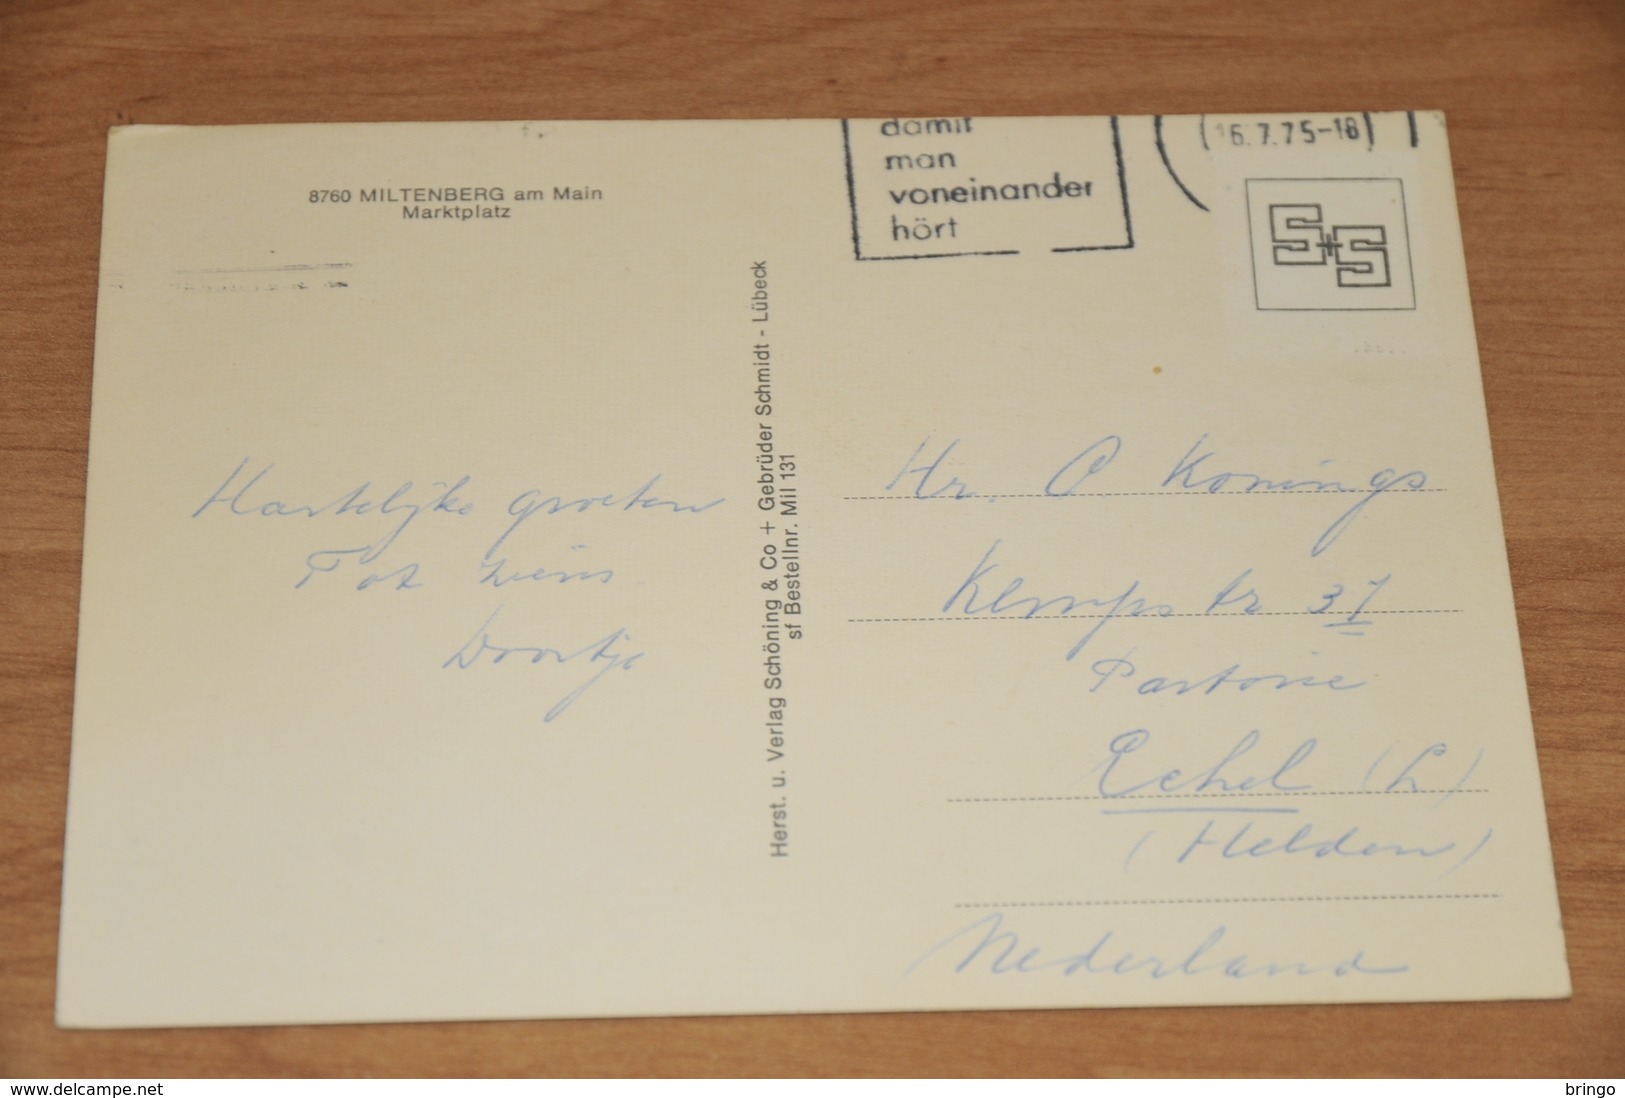 8760 MILTENBERG am Main
Marktplatz
damit
man
voneinander
hört
16.7.75-18
S+S
Hartelijke groeten
Tot ziens
Doortje
Herst. u. Verlag Schöning & Co + Gebrüder Schmidt - Lübeck
sf Bestellnr. Mil 131
Hr. P. Konings
Kempstr 37
Pastorie
Echel (L)
(Helden)
Nederland
www.delcampe.net
bringo